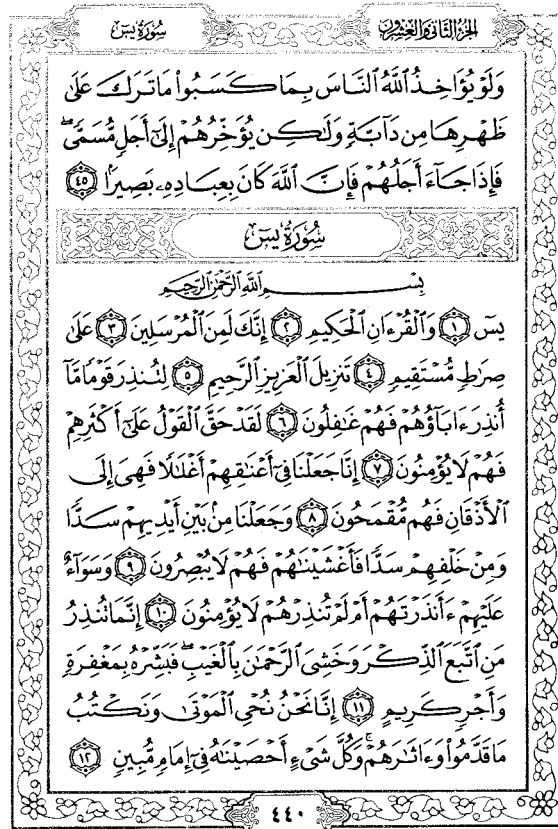 سُورَةُ يسٓ
الجُزْءُ الثَّانِي وَالْعِشْرُونَ
وَلَوْ يُؤَاخِذُ ٱللَّهُ ٱلنَّاسَ بِمَا كَسَبُوا۟ مَا تَرَكَ عَلَىٰ
ظَهْرِهَا مِن دَآبَّةٍ وَلَـٰكِن يُؤَخِّرُهُمْ إِلَىٰٓ أَجَلٍ مُّسَمًّى ۖ
فَإِذَا جَآءَ أَجَلُهُمْ فَإِنَّ ٱللَّهَ كَانَ بِعِبَادِهِۦ بَصِيرًۢا ٤٥
سُورَةُ يسٓ
بِسْمِ ٱللَّهِ ٱلرَّحْمَـٰنِ ٱلرَّحِيمِ
يسٓ ١ وَٱلْقُرْءَانِ ٱلْحَكِيمِ ٢ إِنَّكَ لَمِنَ ٱلْمُرْسَلِينَ ٣ عَلَىٰ
صِرَٰطٍ مُّسْتَقِيمٍ ٤ تَنزِيلَ ٱلْعَزِيزِ ٱلرَّحِيمِ ٥ لِتُنذِرَ قَوْمًا مَّآ
أُنذِرَ ءَابَآؤُهُمْ فَهُمْ غَـٰفِلُونَ ٦ لَقَدْ حَقَّ ٱلْقَوْلُ عَلَىٰٓ أَكْثَرِهِمْ
فَهُمْ لَا يُؤْمِنُونَ ٧ إِنَّا جَعَلْنَا فِىٓ أَعْنَـٰقِهِمْ أَغْلَـٰلًا فَهِىَ إِلَى
ٱلْأَذْقَانِ فَهُم مُّقْمَحُونَ ٨ وَجَعَلْنَا مِنۢ بَيْنِ أَيْدِيهِمْ سَدًّا
وَمِنْ خَلْفِهِمْ سَدًّا فَأَغْشَيْنَـٰهُمْ فَهُمْ لَا يُبْصِرُونَ ٩ وَسَوَآءٌ
عَلَيْهِمْ ءَأَنذَرْتَهُمْ أَمْ لَمْ تُنذِرْهُمْ لَا يُؤْمِنُونَ ١٠ إِنَّمَا تُنذِرُ
مَنِ ٱتَّبَعَ ٱلذِّكْرَ وَخَشِىَ ٱلرَّحْمَـٰنَ بِٱلْغَيْبِ ۖ فَبَشِّرْهُ بِمَغْفِرَةٍ
وَأَجْرٍ كَرِيمٍ ١١ إِنَّا نَحْنُ نُحْىِ ٱلْمَوْتَىٰ وَنَكْتُبُ
مَا قَدَّمُوا۟ وَءَاثَـٰرَهُمْ ۚ وَكُلَّ شَىْءٍ أَحْصَيْنَـٰهُ فِىٓ إِمَامٍ مُّبِينٍ ١٢
٤٤٠